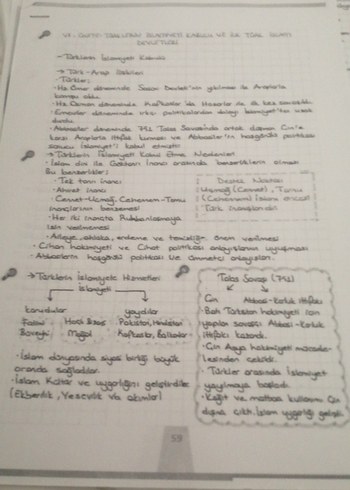 VI- ÜNİTE: TÜRKLERİN İSLAMİYETİ KABULÜ VE İLK TÜRK İSLAM
DEVLETLERİ
- Türklerin İslamiyeti Kabulü
→ Türk-Arap İlişkileri
- Türkler;
• Hz Ömer döneminde Sasani Devleti'nin yıkılması ile Araplarla
komşu oldu.
• Hz Osman döneminde Kafkaslar'da Hazarlar ile ilk kez savaşıldı.
• Emeviler döneminde ırkçı politikalardan dolayı İslamiyet'ten uzak
durdu.
• Abbasiler döneminde 751 Talas Savaşında ortak düşman Çin'e
karşı Araplarla ittifak kurması ve Abbasiler'in hoşgörülü politikası
sonucu İslamiyet'i kabul etmiştir.
→ Türklerin İslamiyeti Kabul Etme Nedenleri
• İslam dini ile Göktanrı inancı arasında benzerliklerin olması
Bu benzerlikler;
• Tek tanrı inancı
• Ahiret inancı
• Cennet-Uçmağ, Cehennem-Tamu
inançlarının benzemesi
• Her iki inançta Ruhbanlaşmaya
izin verilmemesi
• Aileye, ahlaka, erdeme ve temizliğe önem verilmesi
• Cihan hakimiyeti ve Cihat politikası anlayışlarının uyuşması
• Abbasilerin hoşgörülü politikası ve ümmetçi anlayışları.
Uçmağ (Cennet), Tamu
(Cehennem) İslam öncesi
Türk inançlarıdır.
→ Türklerin İslamiyete Hizmetleri
İslamiyeti
korudular
yaydılar
Fatimi
Haçlı
Pakistan, Hindistan
Büveyhi
Moğol
Kafkaslar, Balkanlar
• İslam dünyasında siyasi birliği büyük
oranda sağladılar.
• İslam Kültür ve uygarlığını geliştirdiler
(Ekberilik, Yesevilik vb akımlar)
Talas Savaşı (751)
Çin Abbasi-Karluk ittifakı
• Batı Türkistan hakimiyeti için
yapılan savaşı Abbasi-Karluk
ittifakı kazandı.
• Çin Asya hakimiyeti mücade-
lesinden çekildi.
• Türkler arasında İslamiyet
yayılmaya başladı.
• Kağıt ve matbaa kullanımı Çin
dışına çıktı. İslam uygarlığı gelişti.
59